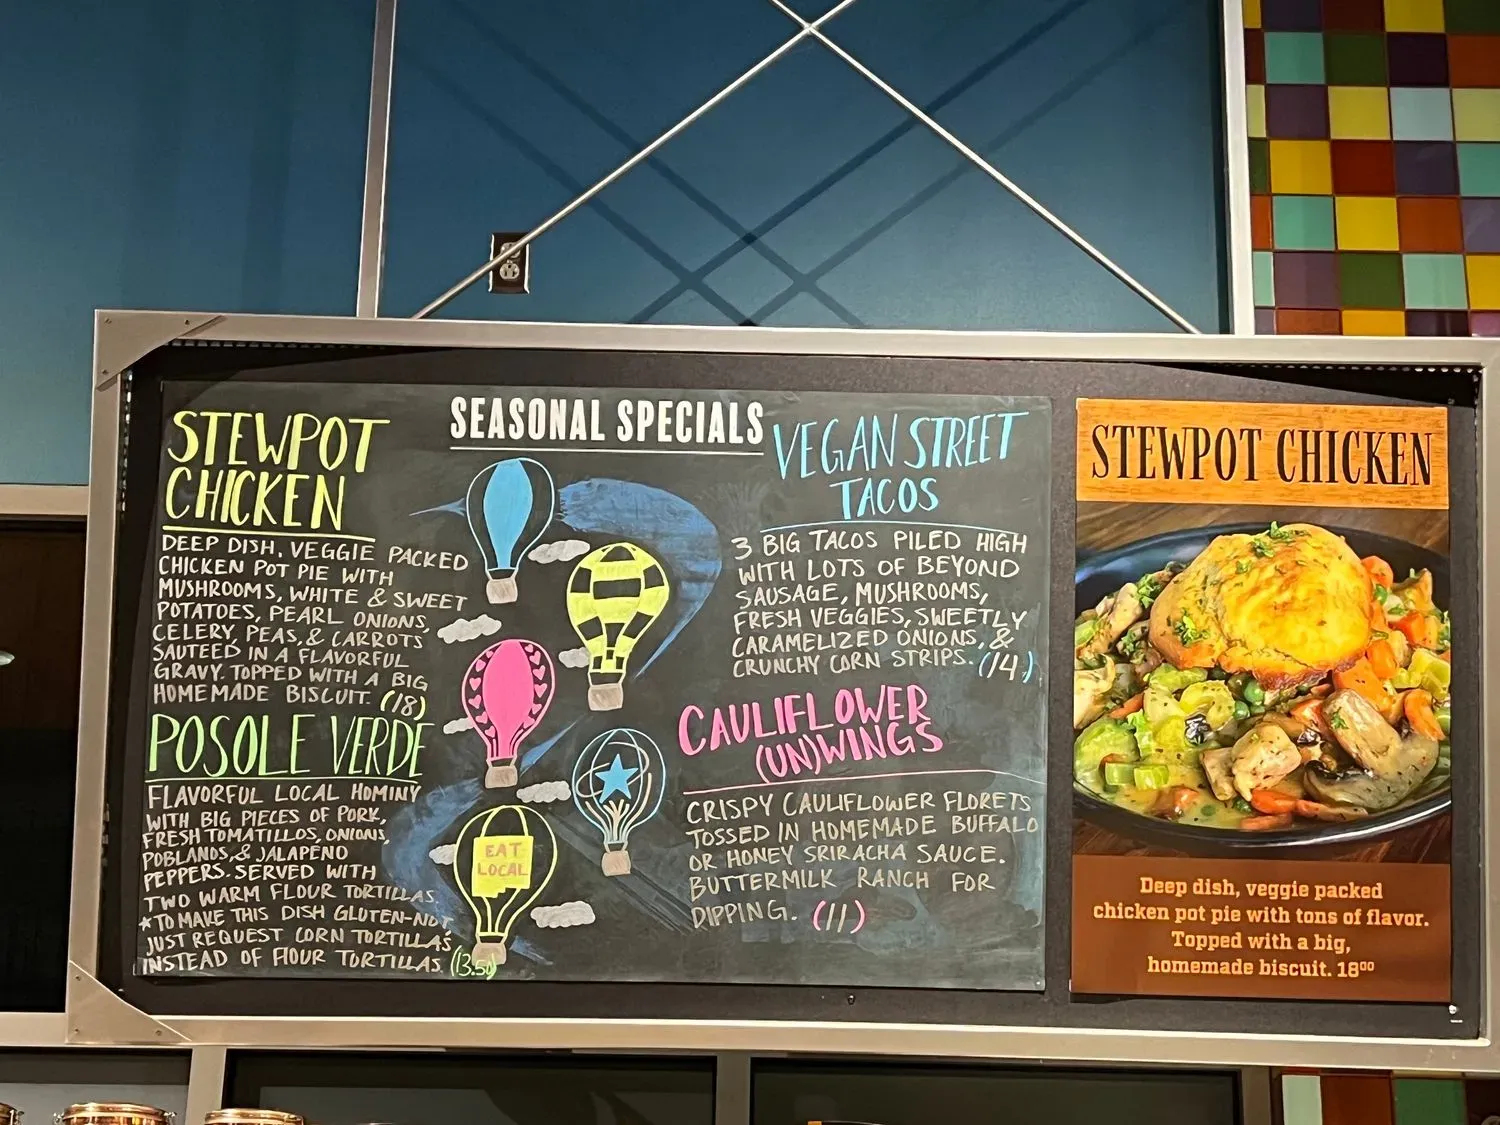 SEASONAL SPECIALS
STEWPOT
CHICKEN
DEEP DISH, VEGGIE PACKED
CHICKEN POT PIE WITH
MUSHROOMS, WHITE & SWEET
POTATOES, PEARL ONIONS,
CELERY, PEAS, & CARROTS
SAUTEED IN A FLAVORFUL
GRAVY. TOPPED WITH A BIG
HOMEMADE BISCUIT. (18)
POSOLE VERDE
FLAVORFUL LOCAL HOMINY
WITH BIG PIECES OF PORK,
FRESH TOMATILLOS, ONIONS,
POBLANOS, & JALAPEÑO
PEPPERS. SERVED WITH
TWO WARM FLOUR TORTILLAS.
*TO MAKE THIS DISH GLUTEN-NOT,
JUST REQUEST CORN TORTILLAS
INSTEAD OF FLOUR TORTILLAS. (13.50)
EAT
LOCAL
VEGAN STREET
TACOS
3 BIG TACOS PILED HIGH
WITH LOTS OF BEYOND
SAUSAGE, MUSHROOMS,
FRESH VEGGIES, SWEETLY
CARAMELIZED ONIONS, &
CRUNCHY CORN STRIPS. (14)
CAULIFLOWER
(UN)WINGS
CRISPY CAULIFLOWER FLORETS
TOSSED IN HOMEMADE BUFFALO
OR HONEY SRIRACHA SAUCE.
BUTTERMILK RANCH FOR
DIPPING. (11)
STEWPOT CHICKEN
Deep dish, veggie packed
chicken pot pie with tons of flavor.
Topped with a big,
homemade biscuit. 18⁰⁰